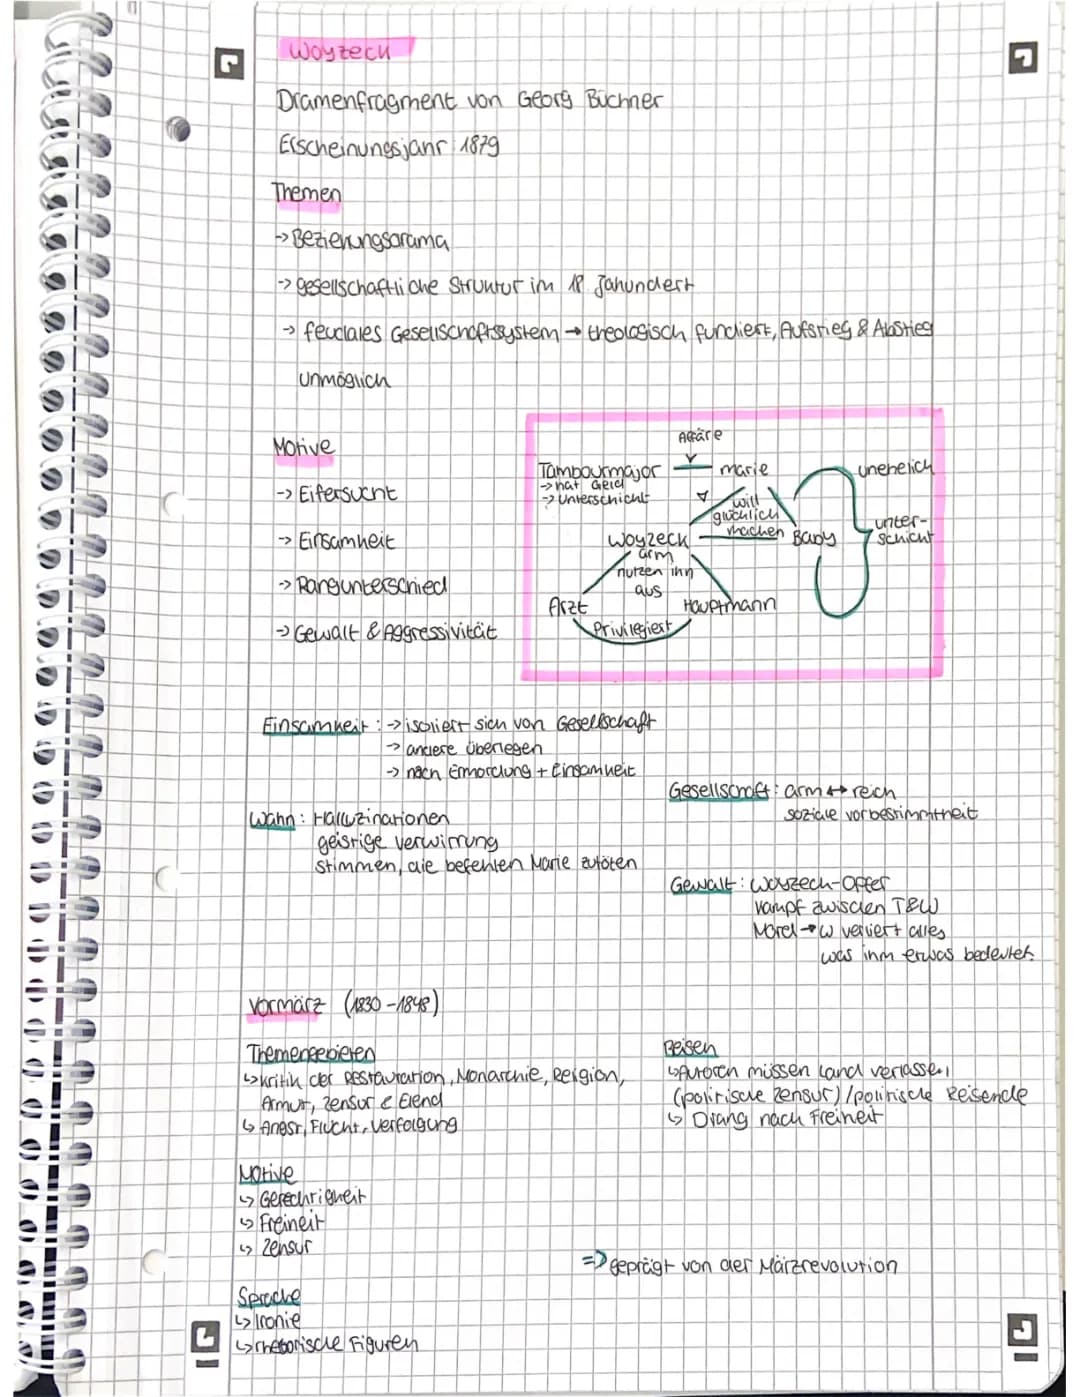 Woyzeck
Dramenfragment von Georg Büchner
Erscheinungsjahr: 1879
Themen
-> Beziehungsdrama
-> gesellschaftliche Struktur im 18 Jahundert
-> feudales Gesellschaftssystem → theologisch fundiert, Aufstieg & Abstieg
unmöglich
Motive
-> Eifersucht
-> Einsamkeit
-> Rangunterschied
-> Gewalt & Aggressivität
Affäre
Tambourmajor
marie
-> hat Geld
-> unterschicht
unehelich
will
glücklich
machen
Baby
unter-
schicht
Woyzeck
arm
nutzen ihn
aus
Arzt
Hauptmann
Privilegiert
Einsamkeit: -> isoliert sich von Gesellschaft
-> andere überlegen
-> nach Ermordung + Einsamkeit
Gesellschaft: arm ↔ reich
soziale vorbestimmtheit
Wahn: Halluzinationen
geistige verwirrung
stimmen, die befehlen Marie zutöten
Gewalt: Woyzech-Opfer
kampf zwischen T&W
Mord → W verliert alles
was ihm etwas bedeutet.
Vormärz (1830-1848)
Themengebieten
↳ Kritik der Restauration, Monarchie, Religion,
Armut, Zensur & Elend
↳ Angst, Flucht, Verfolgung
Reisen
↳ Autoren müssen Land verlassen
(politische Zensur) / politische Reisende
↳ Drang nach Freiheit
Motive
↳ Gerechtigkeit
↳ Freiheit
↳ Zensur
=> geprägt von der Märzrevolution
Sprache
↳ Ironie
↳ rhetorische Figuren